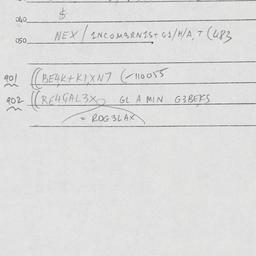 040 $
050 NEX / INCOM3RN1S+G1/H/A, T (483
901 ((BE4K+K1XN7 (-110055
902 ((RE4GAL3X GL A MIN G3BEKS
= ROG3LAX